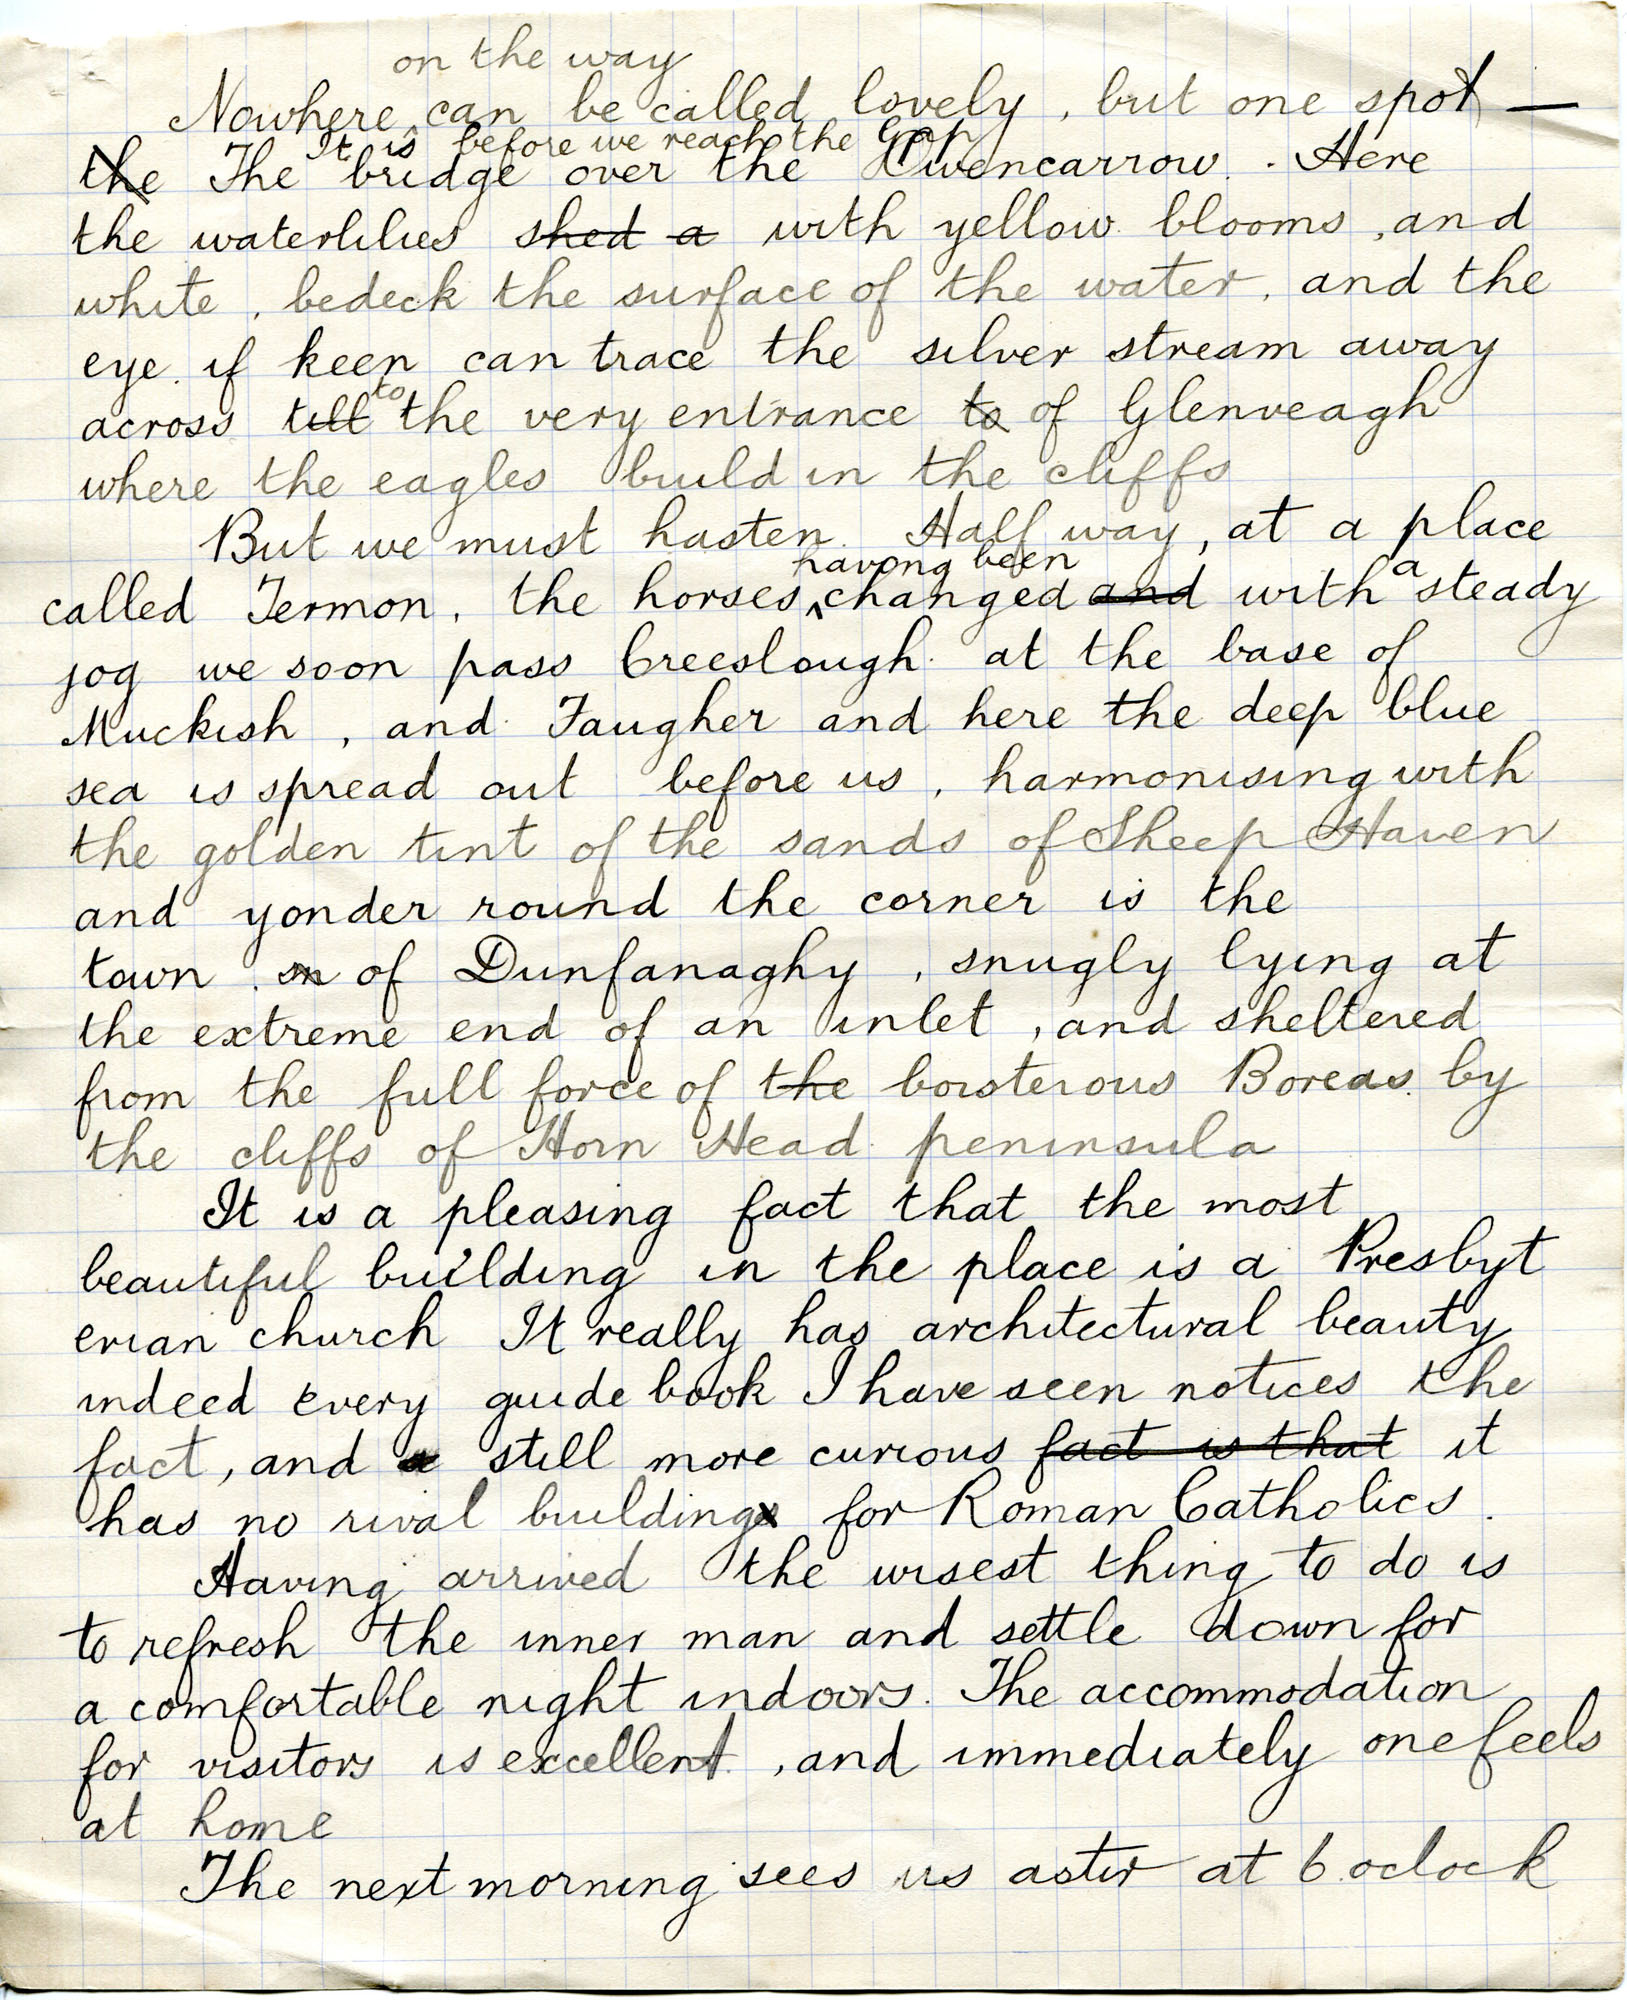 on the way
Nowhere can be called lovely, but one spot —
It is before we reach the Gap
the The bridge over the Owencarrow. Here
the waterlilies shed a with yellow blooms, and
white, bedeck the surface of the water, and the
eye if keen can trace the silver stream away
to
across till the very entrance to of Glenveagh
where the eagles build in the cliffs
But we must hasten. Half way, at a place
having been a
called Termon, the horses, changed and with steady
jog we soon pass Creeslough at the base of
Muckish, and Faugher and here the deep blue
sea is spread out before us, harmonising with
the golden tint of the sands of Sheep Haven
and yonder round the corner is the
town on of Dunfanaghy, snugly lying at
the extreme end of an inlet, and sheltered
from the full force of the boisterous Boreas by
the cliffs of Horn Head peninsula
It is a pleasing fact that the most
beautiful building in the place is a Presbyt
erian church It really has architectural beauty
indeed every guide book I have seen notices the
fact, and a still more curious fact is that it
has no rival buildings for Roman Catholics.
Having arrived the wisest thing to do is
to refresh the inner man and settle down for
a comfortable night indoors. The accommodation
for visitors is excellent, and immediately one feels
at home
The next morning sees us astir at 6 oclock